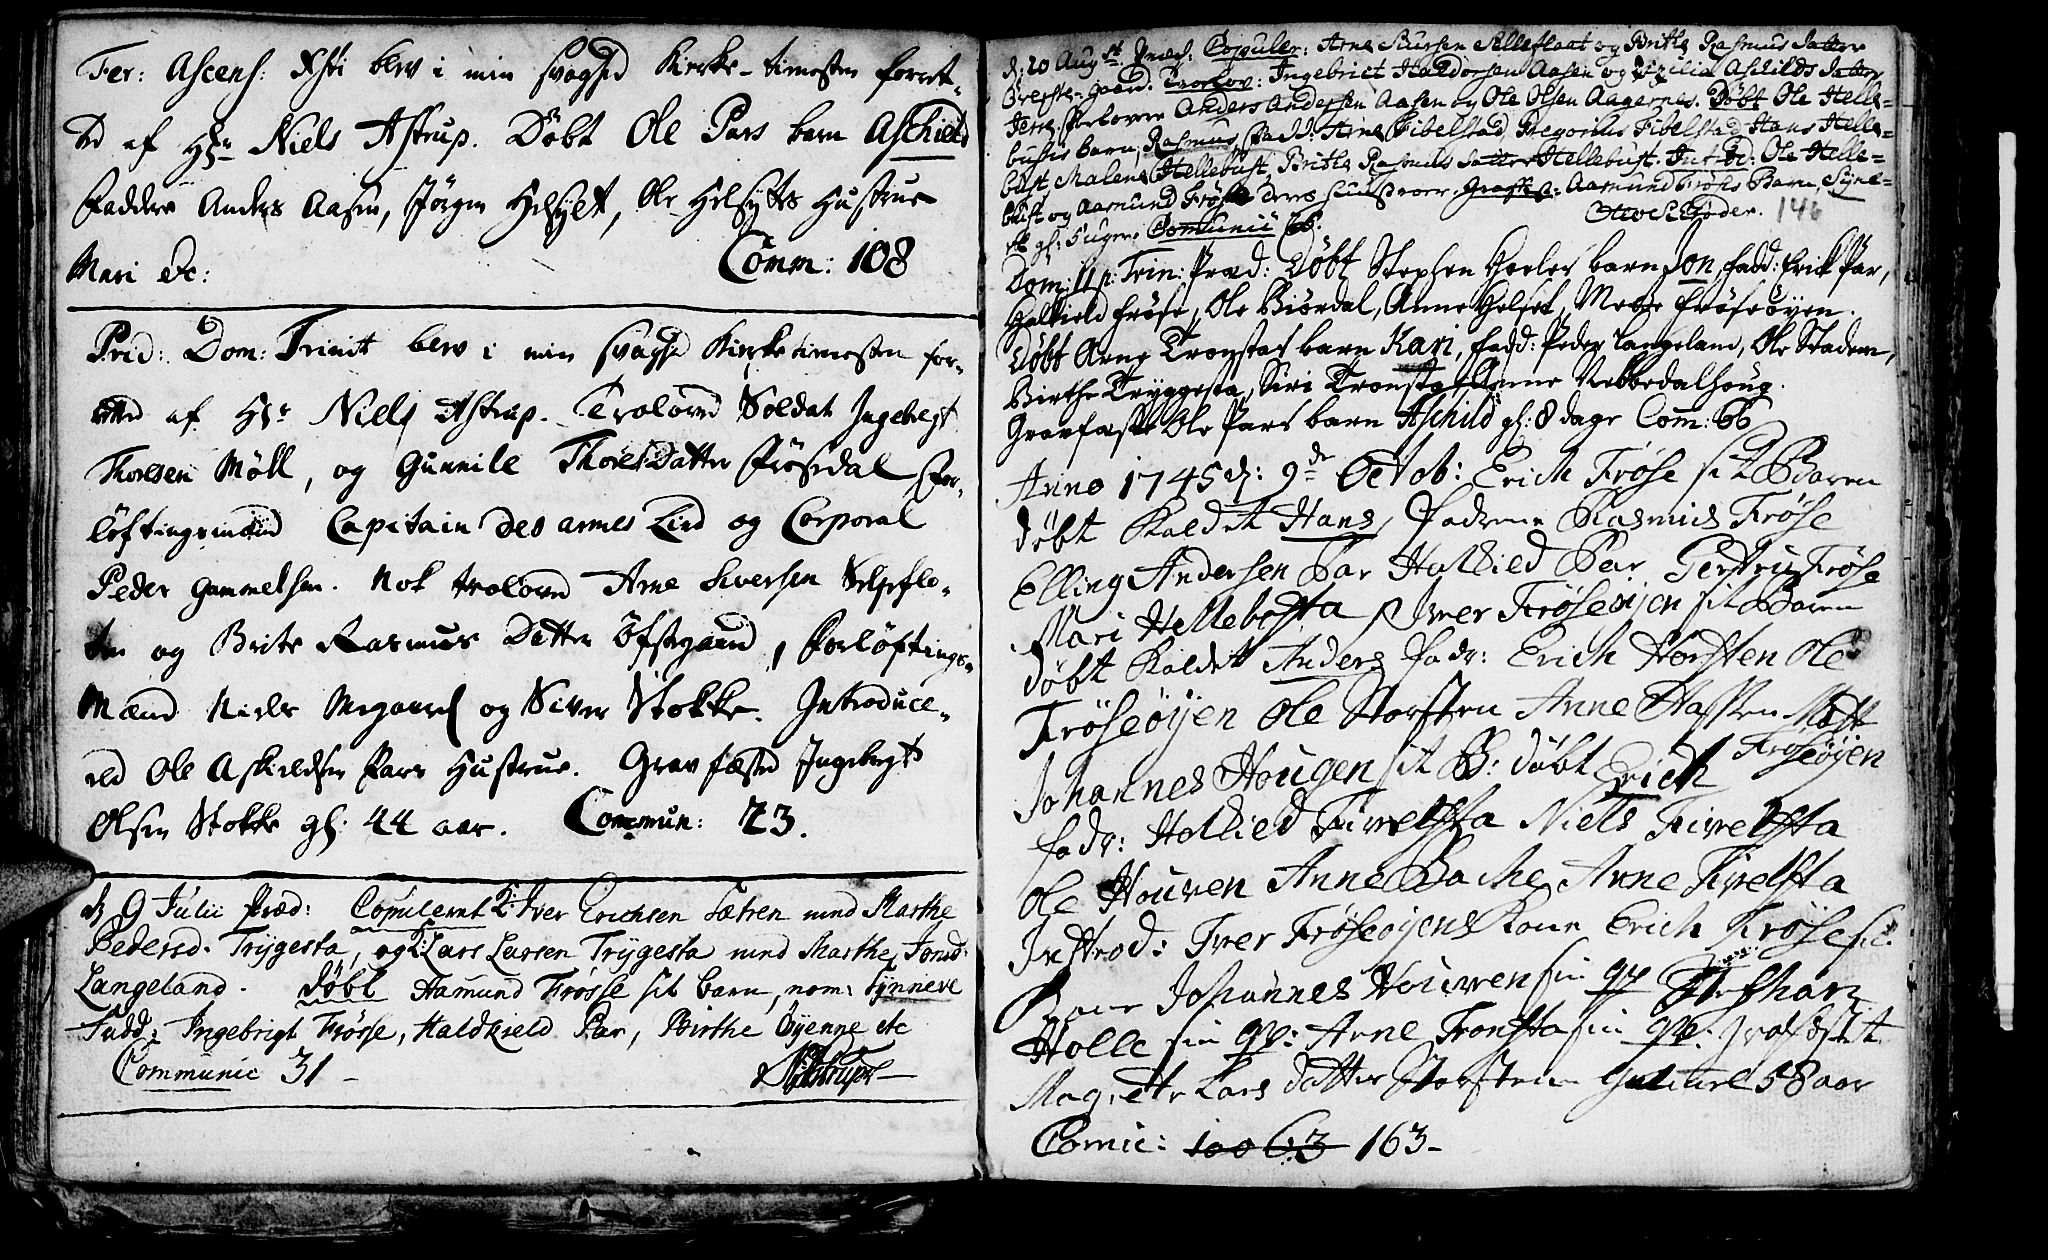 Fer: Ascens: Xsti blev i min svaghed Kirke-tienesten forret-
ted af Hr Niels Astrup. Döbt Ole Pars barn Aschield
Faddere Anders Aasen, Jörgen Helsylt, Ole Helsylts Hustrue
Mari etc: Comm: 108
Prid: Dom: Trinit blev i min svaghd Kirke tienesten for-
retted af Hr Niels Astrup. Troloved Soldat Ingebregt
Thoresen Möll, og Gunnile Thores Datter Frösdal, For-
löftingsmænd Capitain des armes Lind og Corporal
Peder Gammelsen. Nok trolovd Arne Siversen Selfle-
ten og Brite Rasmus Datter Öfstegaard, Forlöftings-
Mænd Niels Megaard og Siver Stokke. Introduce-
red Ole Askieldsen Pars Hustrue. Gravfæsted Ingebregt
Olsen Stokke gl: 44 aar. Commun: 73.
d 9 Julii Præd: Copulerut 2: Iver Erichsen Sætren med Marthe
Pedersd. Trygesta, og 2: Lars Larsen Trygesta med Marthe Jonsd:
Langeland. Döbt Aamund Frösse sit barn, nom: Synneve
Fadd: Ingebrigt Frösse, Haldkield Par, Birthe Öyenne etc
Communic 31 - NAstrup
d: 20 Aug st Præd: Copuler: Arne Siursen Selleflaat og Brithe Rasmus datter
Öveste-gaard. Trolov: Ingebrict Haldorsen Aasen og Cicilia Aschilds datter
Forlovere Anders Andersen Aasen og Ole Olsen Aagernes. Döbt Ole Helle-
busts barn, Rasmus, fadd: Arne Fibelstad, Gregorius Fibelstad, Hans Helle-
bust, Malene Hellebust, Brithe Rasmus datter Hellebust. Introd: Ole Helle-
bust og Aamund Fröse deres hustroer. Graffest: Aamund Frösis Barn, Syne-
ve gl: 5 uger. Comunii 66. 146
Dom: 11 p: Trin: Præd: Döbt Stephen Holes barn Jon, fadd: Erick Par,
Halkield Fröse, Ole Biördal, Anne Helset, Mette Fröseöyen.
Döbt Arne Tronstad barn Kari, fadd: Peder Langeland, Ole Stadem,
Birthe Tryggesta, Siri Tronsta, Anne Nekkedalhoug.
Gravfæstet Ole Pars barn Aschild gl: 8 dage Com: 66
Anno 1745 d: 9de Octob: Erich Fröse sit Baren
döbt Kaldet Hans, Faderne Rasmus Fröse
Elling Andersen Par Halkied Par Gertru Fröse
Mari Hellebosta Iver Fröseöijen sit Baren
döbt Kaldet Anders fadr: Erich Horsten Ole
Fröseöijen Ole Storsten Anne Hassten Mætt
Fröseöyen
Johannes Hougen sit B: döbt Erich
fadr: Halkied Fivvelsta Niels Fivvelsta
Ole Houven Anne Bache Anne Fivelsta
Introd: Iver Fröseöjens Kone Erich Fröse sin
Kone Johannes Houven sin qv Stefhan
Holle sin qv: Arne Tronsta sin qv: grafæstet
Magrette Lars datter Storsten Gammel 58 aar
Comic: 100 63 163-